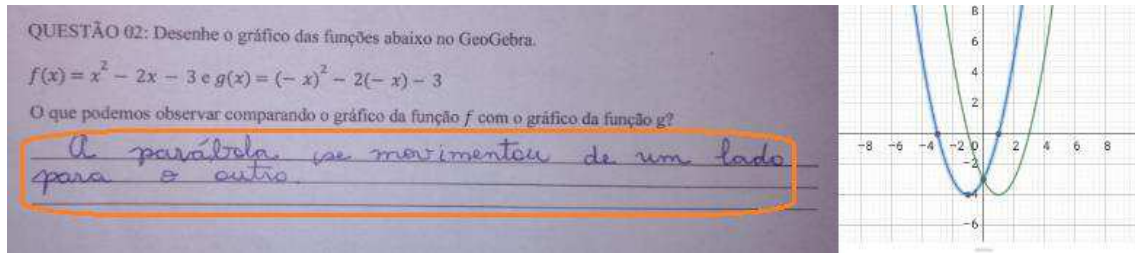 QUESTÃO 02: Desenhe o gráfico das funções abaixo no GeoGebra.
f(x) = x² − 2x − 3 e g(x) = (− x)² − 2(− x) − 3
O que podemos observar comparando o gráfico da função f com o gráfico da função g?
A parábola se movimentou de um lado
para o outro.
8
6
4
2
−8 −6 −4 −2 0 2 4 6 8
−2
−4
−6